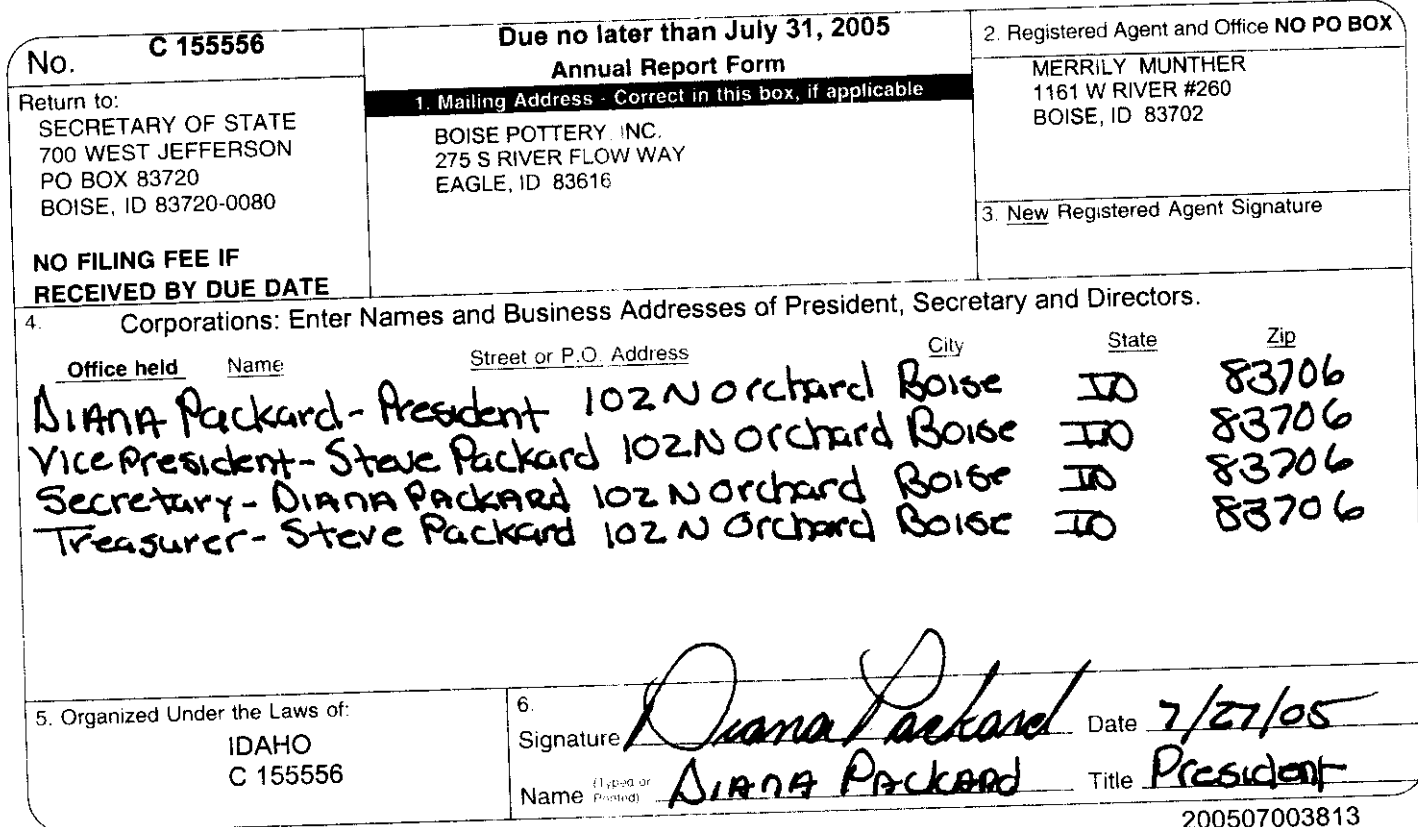 No. C 155556
Return to:
SECRETARY OF STATE
700 WEST JEFFERSON
PO BOX 83720
BOISE, ID 83720-0080
NO FILING FEE IF
RECEIVED BY DUE DATE
Due no later than July 31, 2005
Annual Report Form
1. Mailing Address - Correct in this box, if applicable
BOISE POTTERY, INC.
275 S RIVER FLOW WAY
EAGLE, ID 83616
2. Registered Agent and Office NO PO BOX
MERRILY MUNTHER
1161 W RIVER #260
BOISE, ID 83702
3. New Registered Agent Signature
4. Corporations: Enter Names and Business Addresses of President, Secretary and Directors.
Office held Name Street or P.O. Address City State Zip
DIANA Packard - President 102 N Orchard Boise ID 83706
Vice President - Steve Packard 102 N Orchard Boise ID 83706
Secretary - DIANA PACKARD 102 N Orchard Boise ID 83706
Treasurer - Steve Packard 102 N Orchard Boise ID 83706
5. Organized Under the Laws of:
IDAHO
C 155556
6.
Signature Diana Packard Date 7/27/05
Name (Typed or Printed) DIANA PACKARD Title President
200507003813